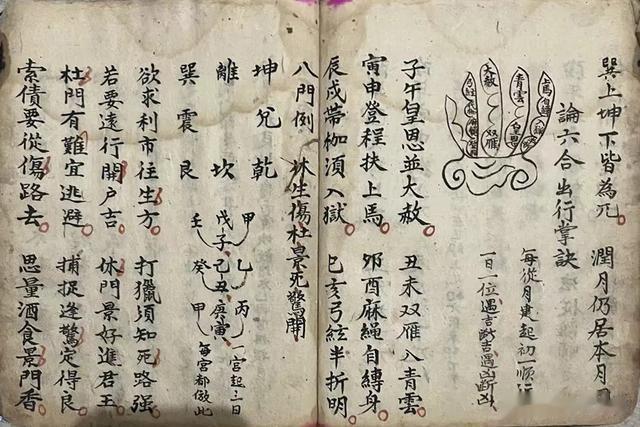 巽上坤下皆為兀 潤月仍居本月
論六合出行掌訣
每從月建起初一順行
一日一位遇吉斷吉遇凶斷凶
上馬
青雲
皇恩
大赦
双雁
子午皇恩並大赦 丑未双雁入青雲
寅申登程扶上馬 夘酉麻繩自縛身
辰戌帶枷須入獄 巳亥弓絃半折明
八門例 休生傷杜景死驚開
坤兌乾
離 坎
巽震艮
甲 乙 丙
戊子 己丑 庚寅
壬 癸 甲
一宮起三日
每宮都倣此
欲求利市往生方 打獵須知死路强
若要遠行開户吉 休門景好進君王
杜門有難宜逃避 捕捉逢驚定得良
索債要從傷路去 思量酒食景門香